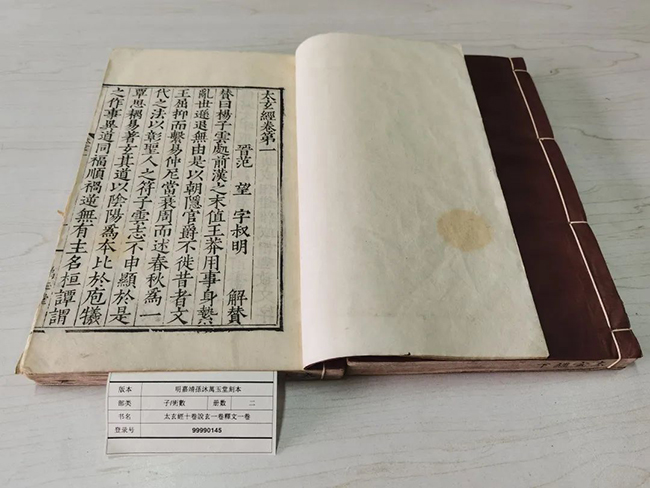 太玄經卷第一
晉范 望 字叔明 解贊
贊曰楊子雲處前漢之末值王莽用事身縶
亂世遜退無由是以朝隱官爵不徙昔者文
王屈抑而繫易仲尼當衰周而述春秋爲一
代之法以彰聖人之符子雲志不申顯於是
覃思耦易著玄其道以陰陽爲本比於庖犧
之作事異道同福順禍逆無有主名桓譚謂
版本 明嘉靖孫沐萬玉堂刻本
部类 子/術數 册数 二
书名 太玄經十卷說玄一卷釋文一卷
登录号 99990145